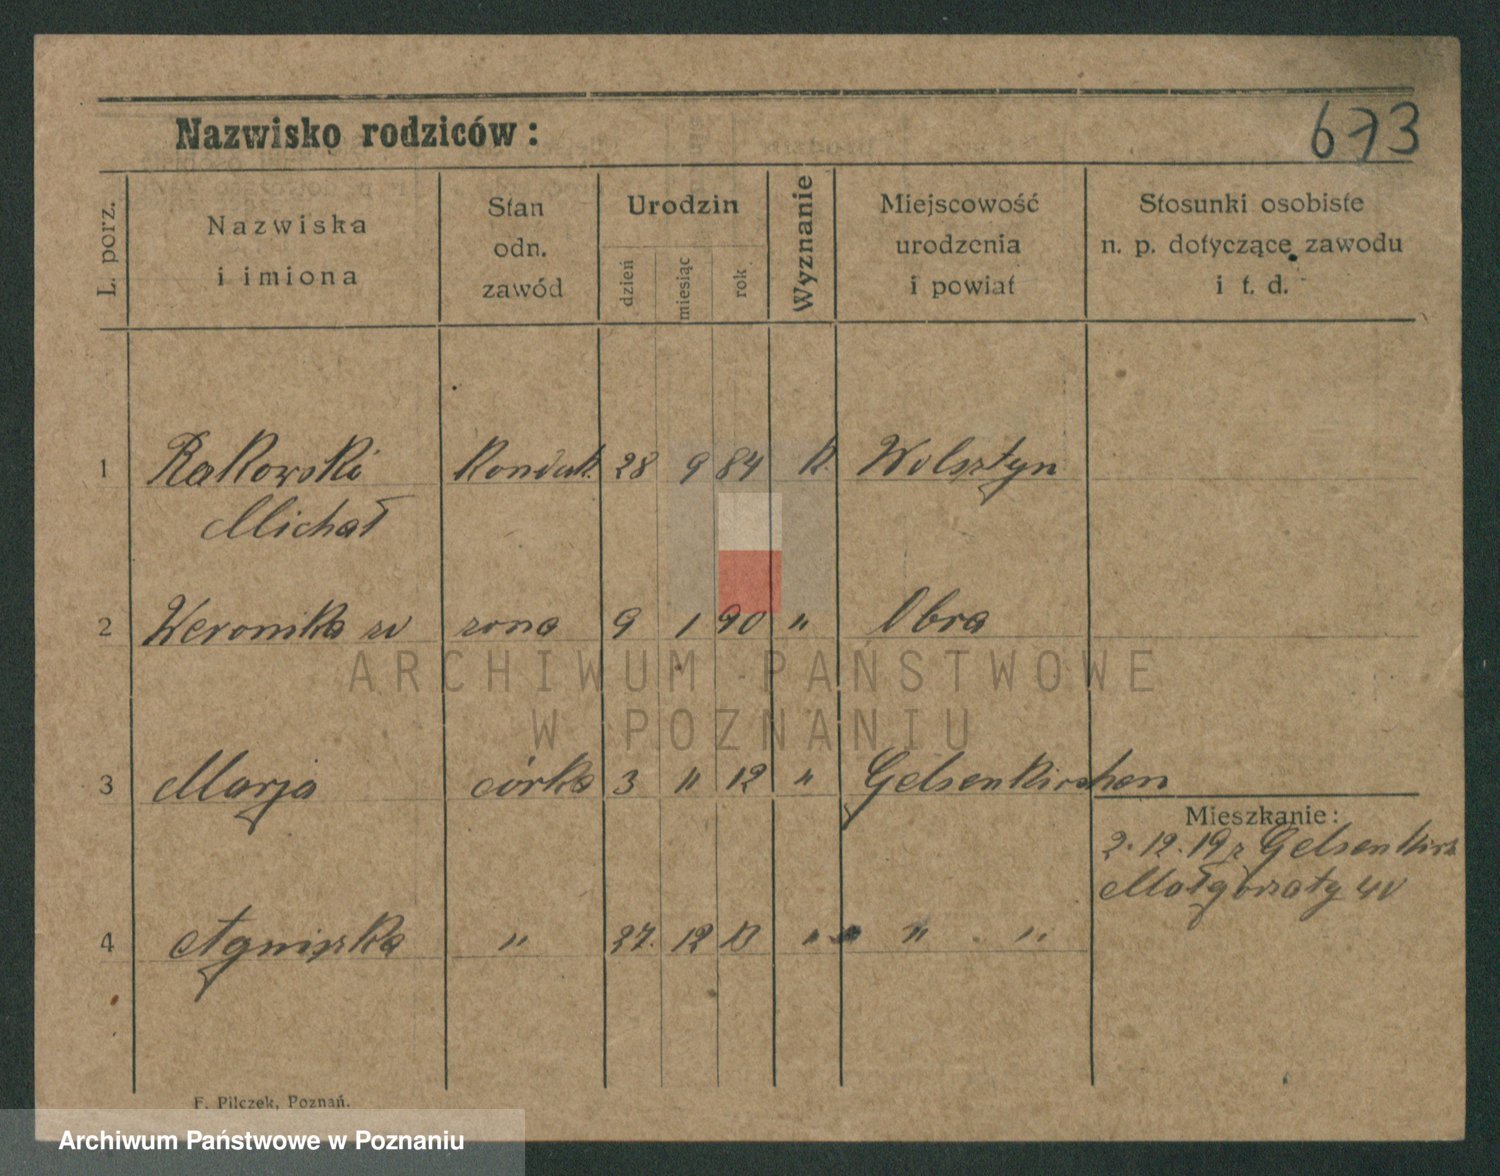 Nazwisko rodziców:
673
L. porz.
Nazwiska
i imiona
Stan
odn.
zawód
Urodzin
dzień
miesiąc
rok
Wyznanie
Miejscowość
urodzenia
i powiat
Stosunki osobiste
n. p. dotyczące zawodu
i t. d.
1 Rakowski konduk. 28 9 84 k. Wolsztyn
Michał
2 Weronika zona 9 1 90 " Obra
3 Marja córka 3 " 12 " Gelsenkirchen
Mieszkanie:
2.12.19 z Gelsenkirch
Małgorzaty
4 Agniszka " 27. 12 " " "
F. Pilczek, Poznań.
ARCHIWUM PAŃSTWOWE
W POZNANIU
Archiwum Państwowe w Poznaniu